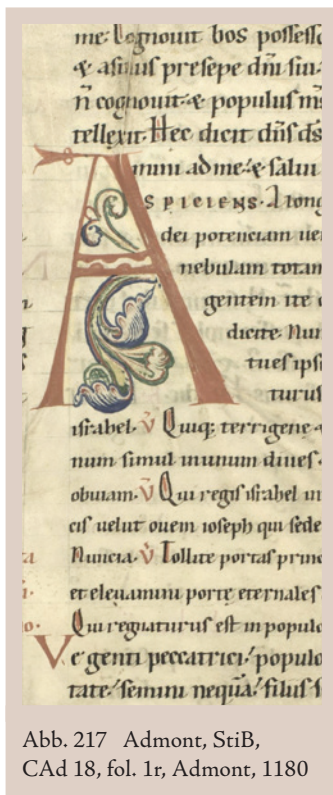 me. Cognouit bos possess
& asinus presepe dn̄i sui.
n̄ cognouit. & populus m̄s
tellexit. Hec dicit dn̄s ds̄
mini ad me. & salui
A SPICIENS. A long
dei potenciam ue
nebulam totam
gentem ite o
dicite. Nun
tu es ips
turus
israhel. v̄ Quiq; terrigene &
num simul in unum diues.
obuiam. v̄ Qui regis israhel in
cis uelut ouem ioseph qui sede
Nuncia. v̄ Tollite portas princ
et eleuamini porte eternales
Qui regnaturus est in populo
Ve genti peccatrici. populo
tate. semini nequā. filiis s
Abb. 217 Admont, StiB,
CAd 18, fol. 1r, Admont, 1180